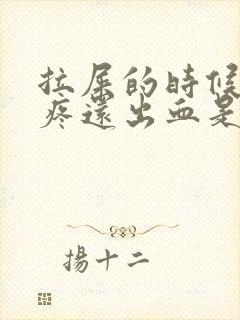 拉屎的時候
疼還出血是
揚十二